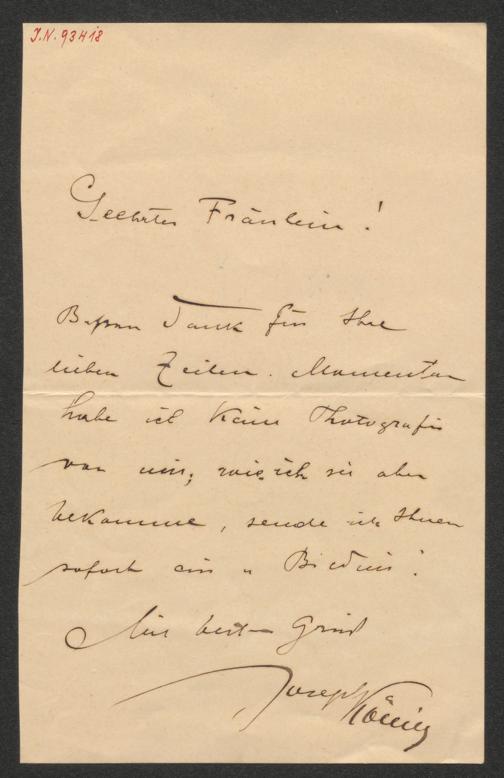 J.N. 93418
Geehrtes Fräulein!
Besten Dank für Ihre
lieben Zeilen. Momentan
habe ich keine Photografie
von mir; wie ich sie aber
bekomme, sende ich Ihnen
sofort ein Bildnis!
Mit besten Gruß
Joseph König